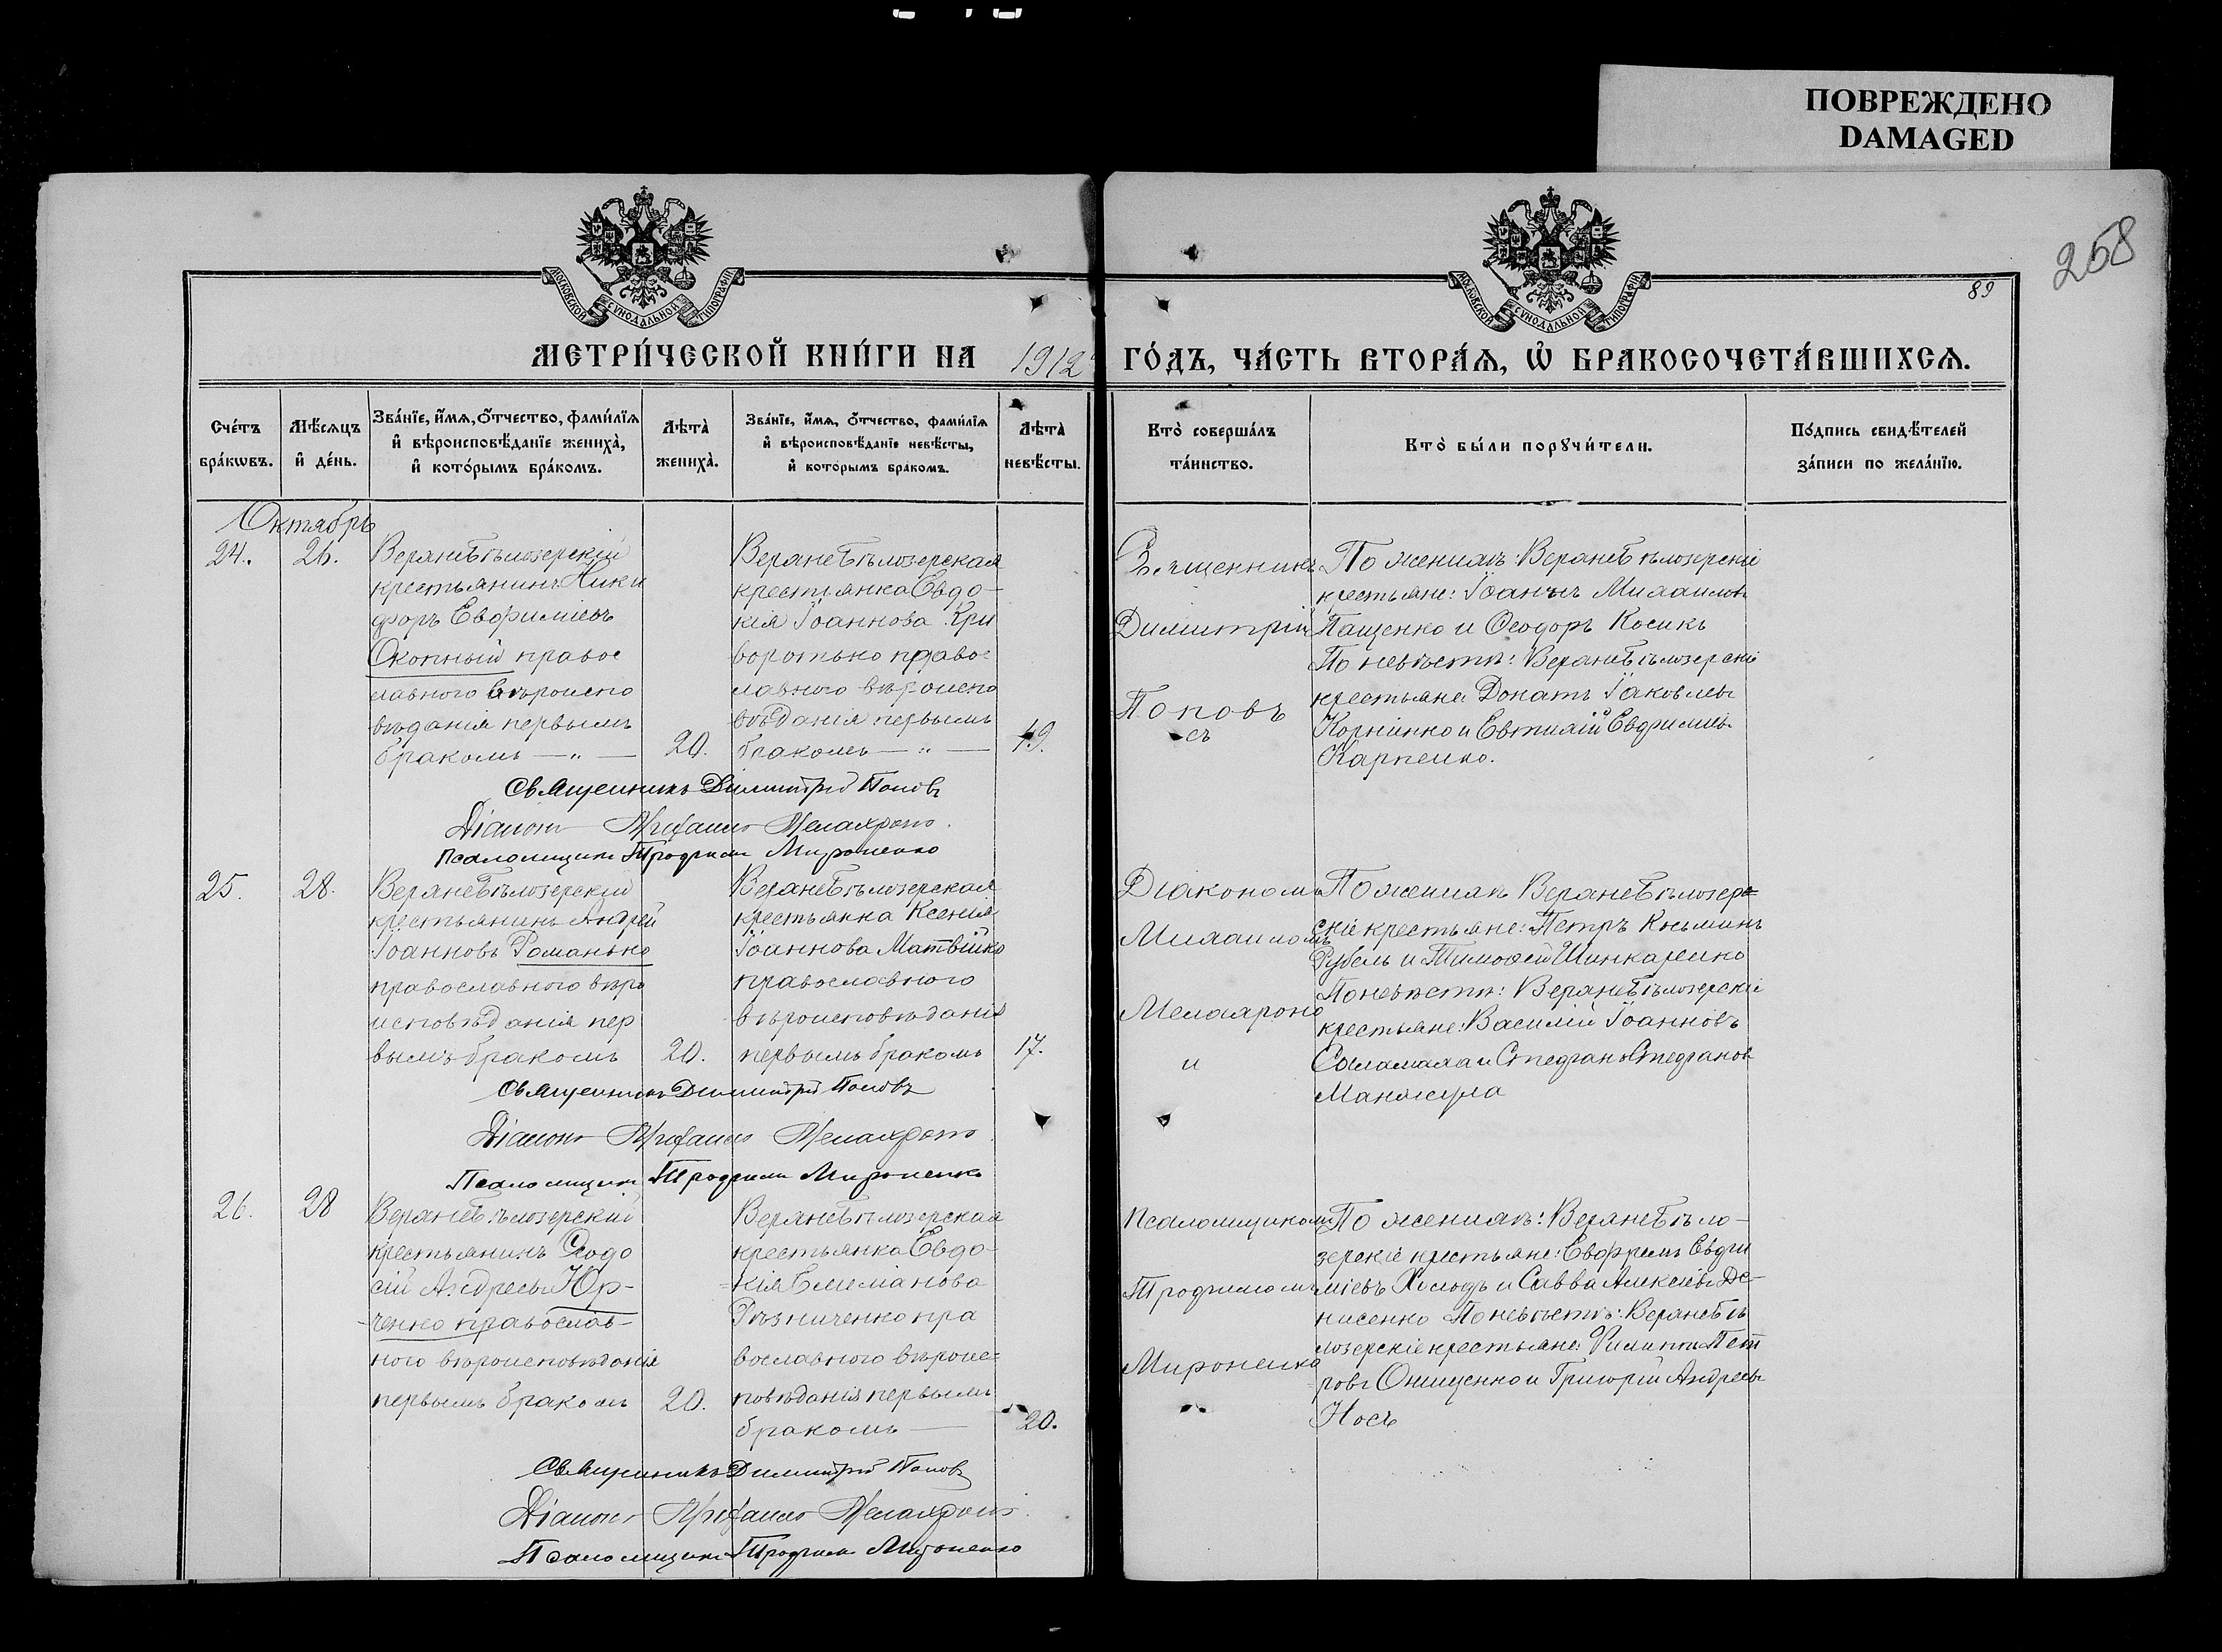 ПОВРЕЖДЕНО
DAMAGED
258
МОСКОВСКОЙ СѴНОДАЛЬНОЙ ТИПОГРАФІИ
МОСКОВСКОЙ СѴНОДАЛЬНОЙ ТИПОГРАФІИ
89
МЕТРИ́ЧЕСКОЙ КНИ́ГИ НА 1912 ГО́ДЪ, ЧА́СТЬ ВТОРА́Я, Ѡ҆ БРАКОСОЧЕТА́ВШИХСѦ.
Сче́тъ
бра́кѡвъ.
Мѣ́сѧцъ
и҆ де́нь.
Зва́нїе, и҆́мѧ, ѻ҆́тчество, фами́лїѧ
и҆ вѣроисповѣ́данїе жениха̀,
и҆ кото́рымъ бра́комъ.
Лѣта̀
жениха̀.
Зва́нїе, и҆́мѧ, ѻ҆́тчество, фами́лїѧ
и҆ вѣроисповѣ́данїе невѣ́сты,
и҆ кото́рымъ бра́комъ.
Лѣта̀
невѣ́сты.
Кто̀ соверша́лъ
та́инство.
Кто̀ бы́ли порꙋчи́тели.
По́дпись свидѣ́телей
за́писи по жела́нїю.
Октябрь
24.
26.
Верхнебѣлозерскій
крестьянинъ Ники
форъ Евфиміевъ
Скопный правос
лавного вѣроиспо
вѣданія первымъ
бракомъ — „ —
20.
Верхнебѣлозерская
крестьянка Евдо-
кія Іоаннова Кри
воротько право-
лавного вѣроиспо
вѣданія первымъ
бракомъ — „ —
19.
Священникъ
Димитрій
Поповъ
съ
По женихѣ: Верхнебѣлозерскіе
крестьяне: Іоаннъ Михаиловъ
Пащенко и Ѳеодоръ Косикъ
По невѣстѣ: Верхнебѣлозерскіе
крестьяне Донатъ Іаковлевъ
Корніенко и Евтихій Евфиміев.
Карпенко.
Священникъ Димитрій Поповъ
Діаконъ Михаилъ Мелахроно.
Псаломщикъ Трофимъ Мироненко
25.
28.
Верхнебѣлозерскій
крестьянинъ Андрей
Іоанновъ Романько
православного вѣро
исповѣданія пер
вымъ бракомъ
20.
Верхнебѣлозерская
крестьянка Ксенія
Іоаннова Матвійко
православного
вѣроисповѣданія
первымъ бракомъ
17.
Діакономъ
Михаиломъ
Мелахроно
и
По женихѣ Верхнебѣлозер=
скіе крестьяне: Петръ Косьминъ
Рубель и Тимоѳей Шинкаренко
По невѣстѣ: Верхнебѣлозерскіе
крестьяне: Василій Іоанновъ
и Стефанъ Стефанов
Манжула
Священникъ Димитрій Поповъ
Діаконъ Михаилъ Мелахроно
Псаломщикъ Трофимъ Мироненко
26.
28
Верхнебѣлозерскій
крестьянинъ Ѳеодо
сій Андреевъ Юр-
ченко православ-
ного вѣроисповѣданія
первымъ бракомъ
20.
Верхнебѣлозерская
крестьянка Евдо-
кія
Рѣзниченко пра
вославного вѣроис=
повѣданія первымъ
бракомъ —
20.
Псаломщикомъ
Трофимомъ
Мироненко
По женихѣ: Верхнебѣло-
зерскіе крестьяне: Евфремъ Евфи
міевъ Холодъ и Савва Алексіевъ Де-
нисенко По невѣстѣ: Верхнебѣ
лозерскіе крестьяне: Филиппъ Пет
ровъ Онищенко и Григорій Андреевъ
Носъ
Священникъ Димитрій Поповъ
Діаконъ Михаилъ Мелахроно.
Псаломщикъ Трофимъ Мироненко